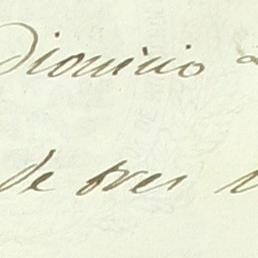 Dionicio
de tres